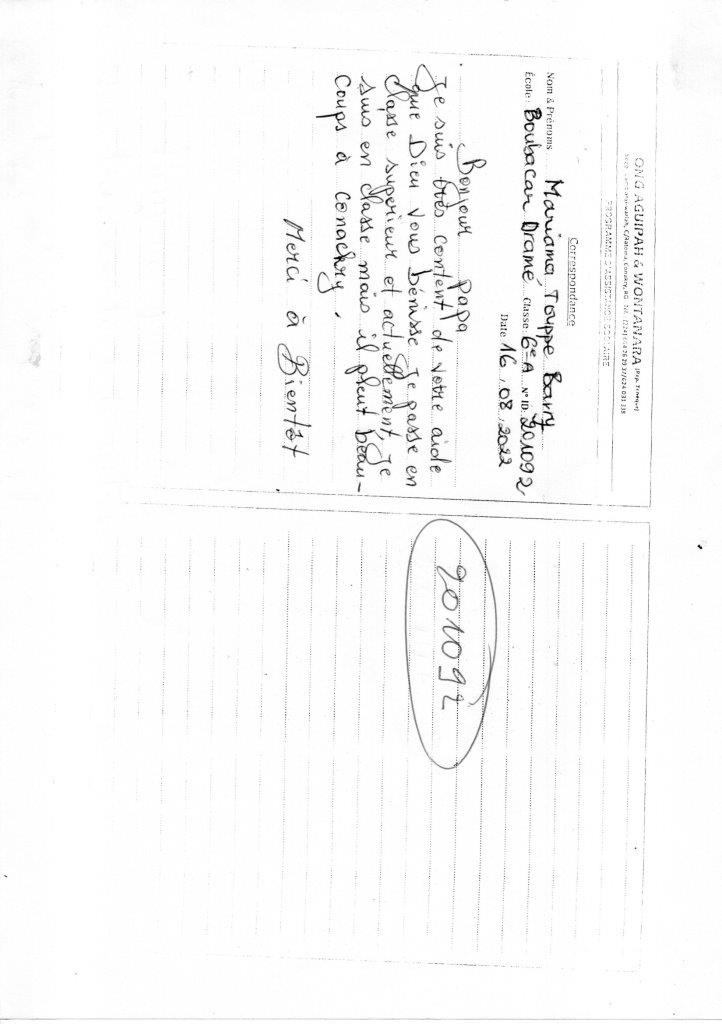 ONG AGUIPAH & WONTANARA
PROGRAMME D'ASSISTANCE SCOLAIRE
Correspondance
Nom & Prénoms: Mariama Touppe Barry
École: Boubacar Dramé Classe: 6e A N° ID: 201092
Date 16.08.2022
Bonjour papa
Je suis très content de votre aide
que Dieu vous bénisse Je passe en
classe superieur et actuellement, Je
suis en classe mais il pleut beau-
coups à Conackry.
Merci à Bientôt
201092